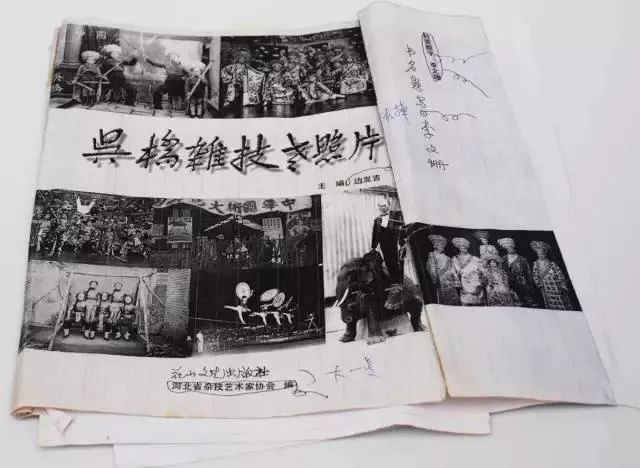 吳橋雜技老照片
主 编 边发吉
大術國華中
花山文艺出版社
河北省杂技艺术家协会 编
书名题写 李文珊